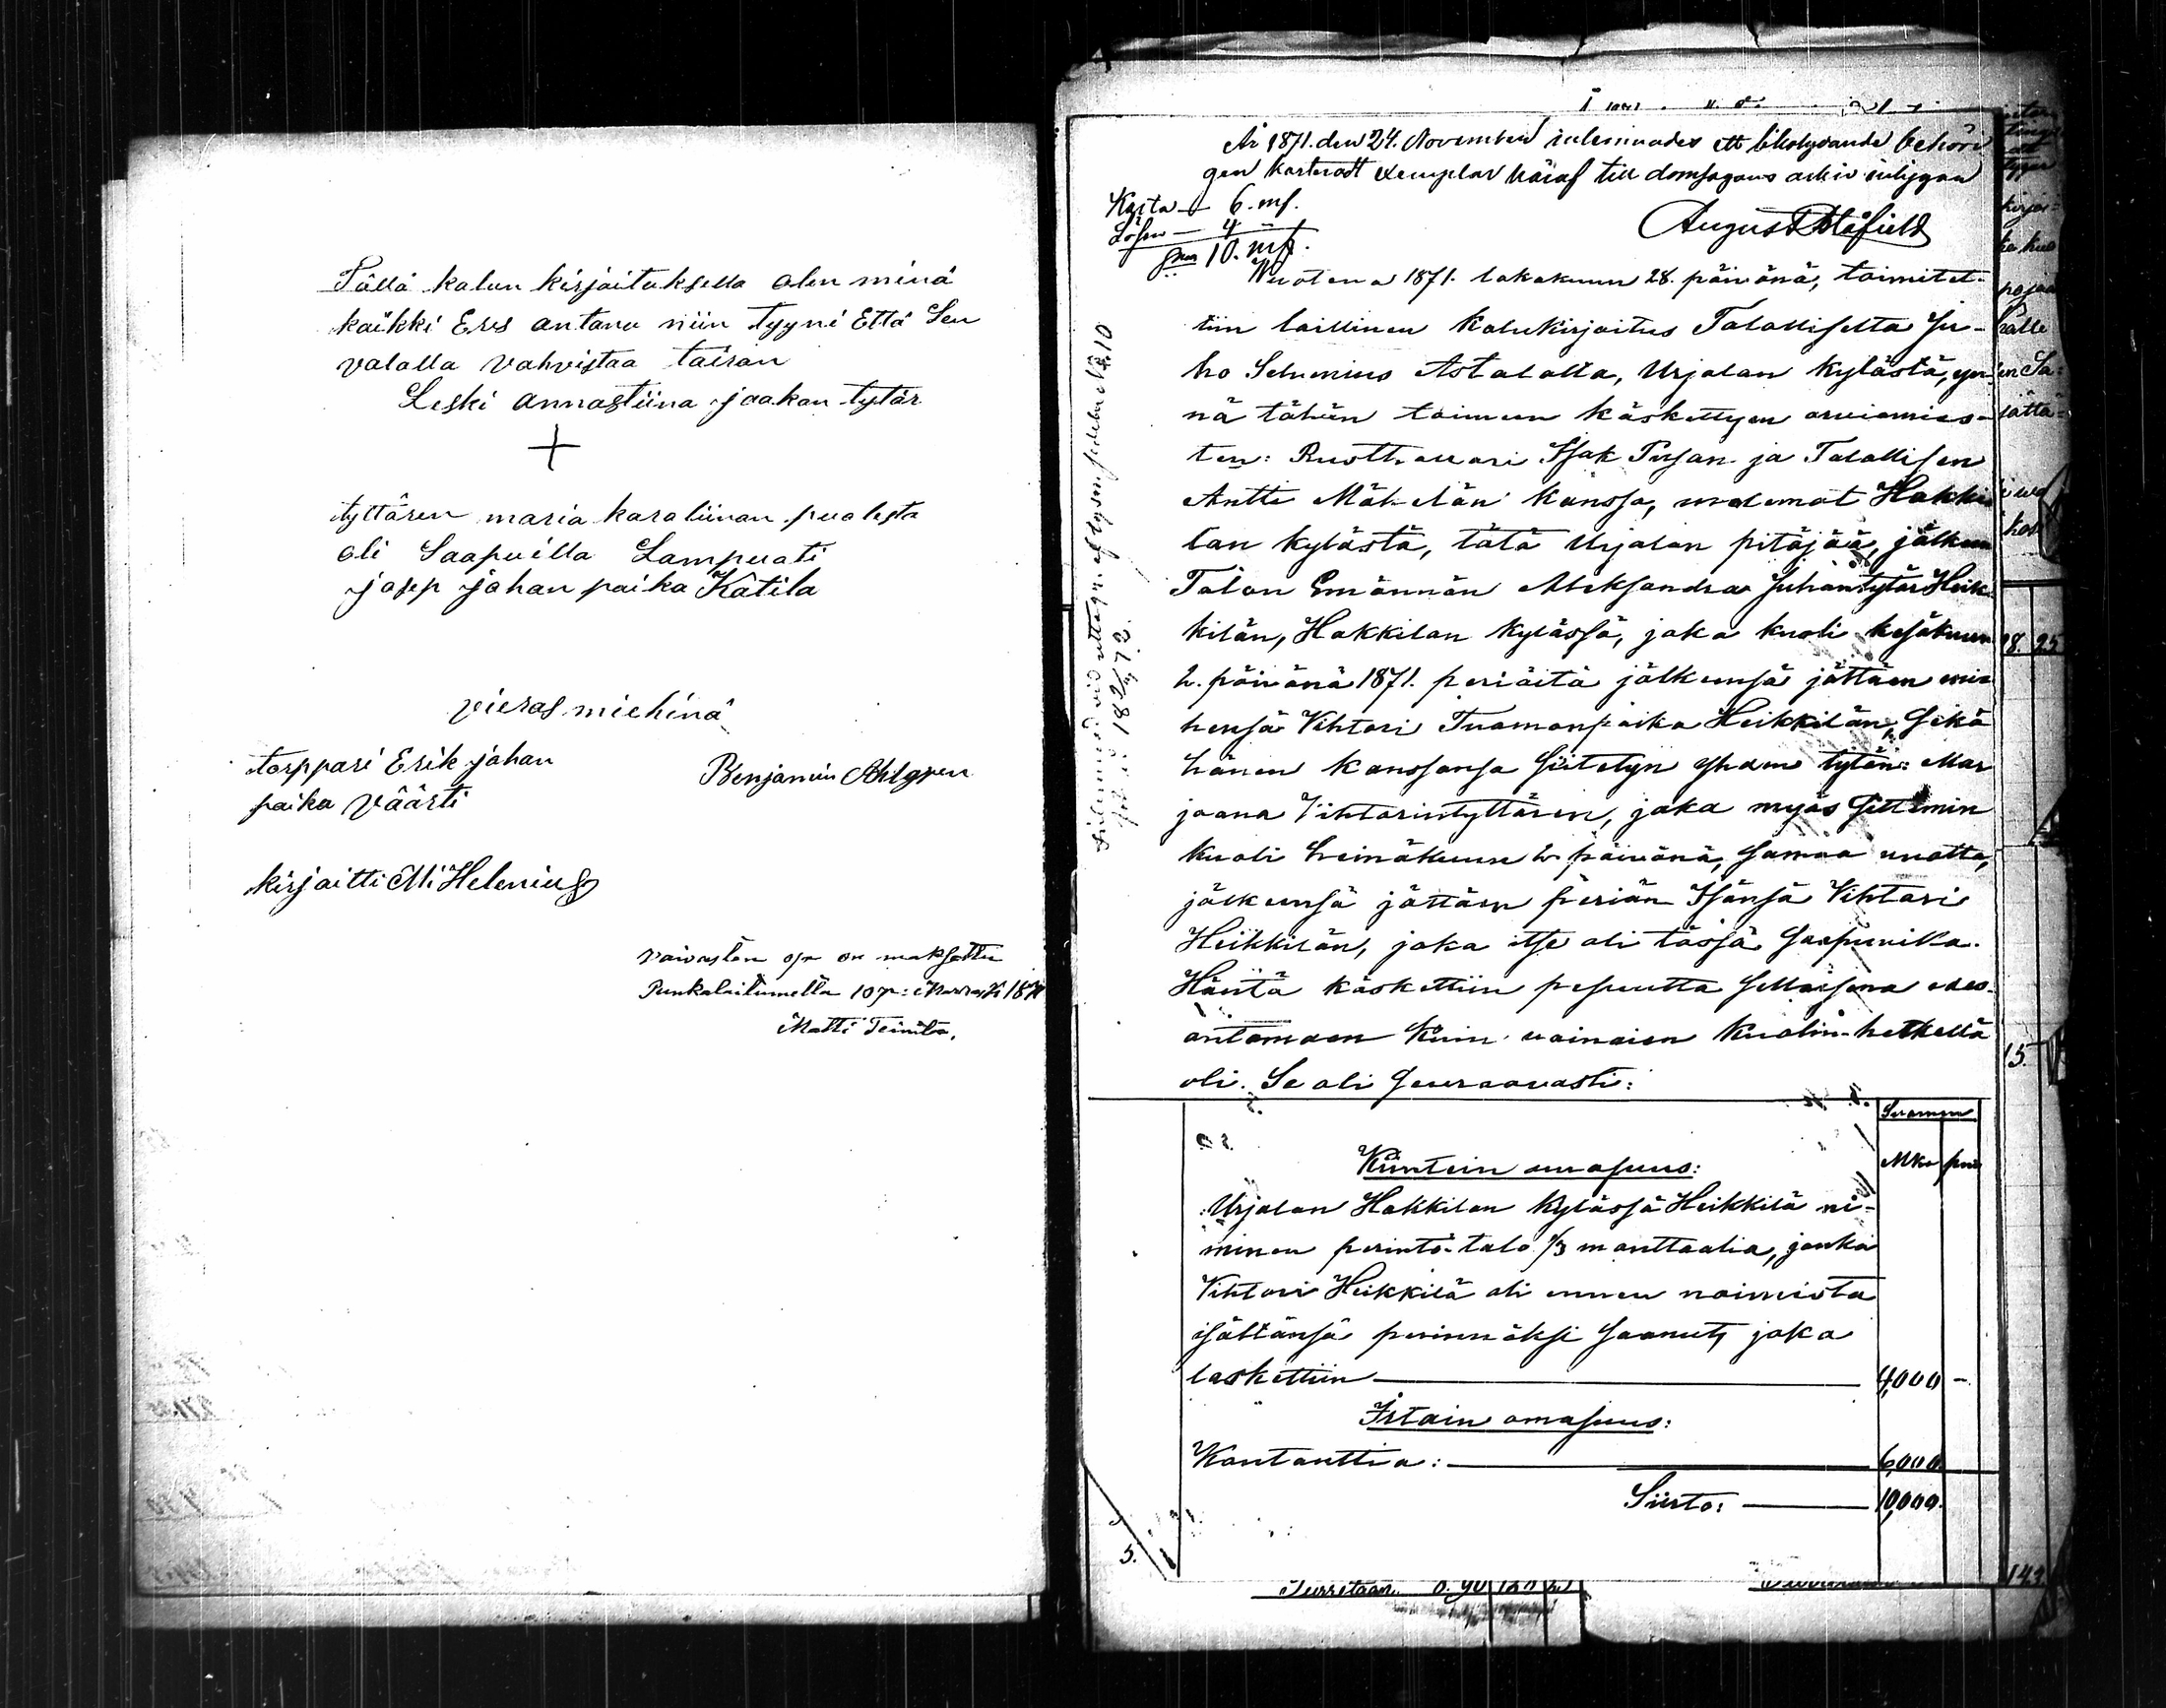 Tällä kalun kirjoituksella olen minä
kaikki Eres antanu niin tyyni Että Sen
valalla vahvistaa taisan
Leski annastiina jaakon tytär
tyttären maria karoliinan puolesta
oli Saapuilla Lampuati
josep johan poika Katila
vieras miehinä
torppari Erik johan
poika väärti
Benjamin Ahlgren
kirjoitti M: Helenius
vaivasten osa on maksettu
Punkalaitumella 10 p:
Matti Teinila,
År 1871. den 24. November inlemnades ett likalydande behöri
gen karteradt exemplar häraf till domsagans arkiv intygaa
Karta — 6. mk.
Lösen — 4 "
Sma 10. mk.
Vuotena 1871. lokakuun 28. päivänä, toimitet-
tiin laillinen kalukirjoitus Talolliselta Ju-
ho Selenius Astalalta, Urjalan kylästä, yn-
nä tähän toimeen käskettyen arviomies-
ten: Ruotturvari Isak Pusan ja Talollisen
Antti Mäkelän kanssa, molemat Hakki
lan kylästä, tätä Urjalan pitäjää, jälkeen
Talon Emännän Aleksandra Juhantytär Heik
kilän, Hakkilan kylässä, joka kuoli kesäkuun
2. päivänä 1871. periäitä jälkeensä jättäen mie
hensä Vihtori Tuomanpoika Heikkilän, Sekä
hänen kanssansa Siitetyn yhden tytön: Mar
jaana Vihtorintyttären, joka myös Sittemin
kuoli heinäkuun 2 päivänä, Samaa vuotta,
jälkeensä jättäen periän Isänsä Vihtori
Heikkilän, joka itse oli tässä Saapuvilla.
Häntä käskettiin pesuutta Sellaisena edes-
antamaan kuin vainaien kuolin-hetkellä
oli. Se oli Seuraavasti:
Suomen
Mka pni
Kiintein omasuus:
Urjalan Hakkilan kylässä Heikkilä ni-
minen perintö-talo 1/3 manttaalia, jonka
Vihtori Heikkilä oli ennen naimista
isältänsä perinnöksi Saanut, joka
laskettiin — 4,000 —
Irtain omasuus:
Kontanttia: — 6,000
Siirto: — 10,000